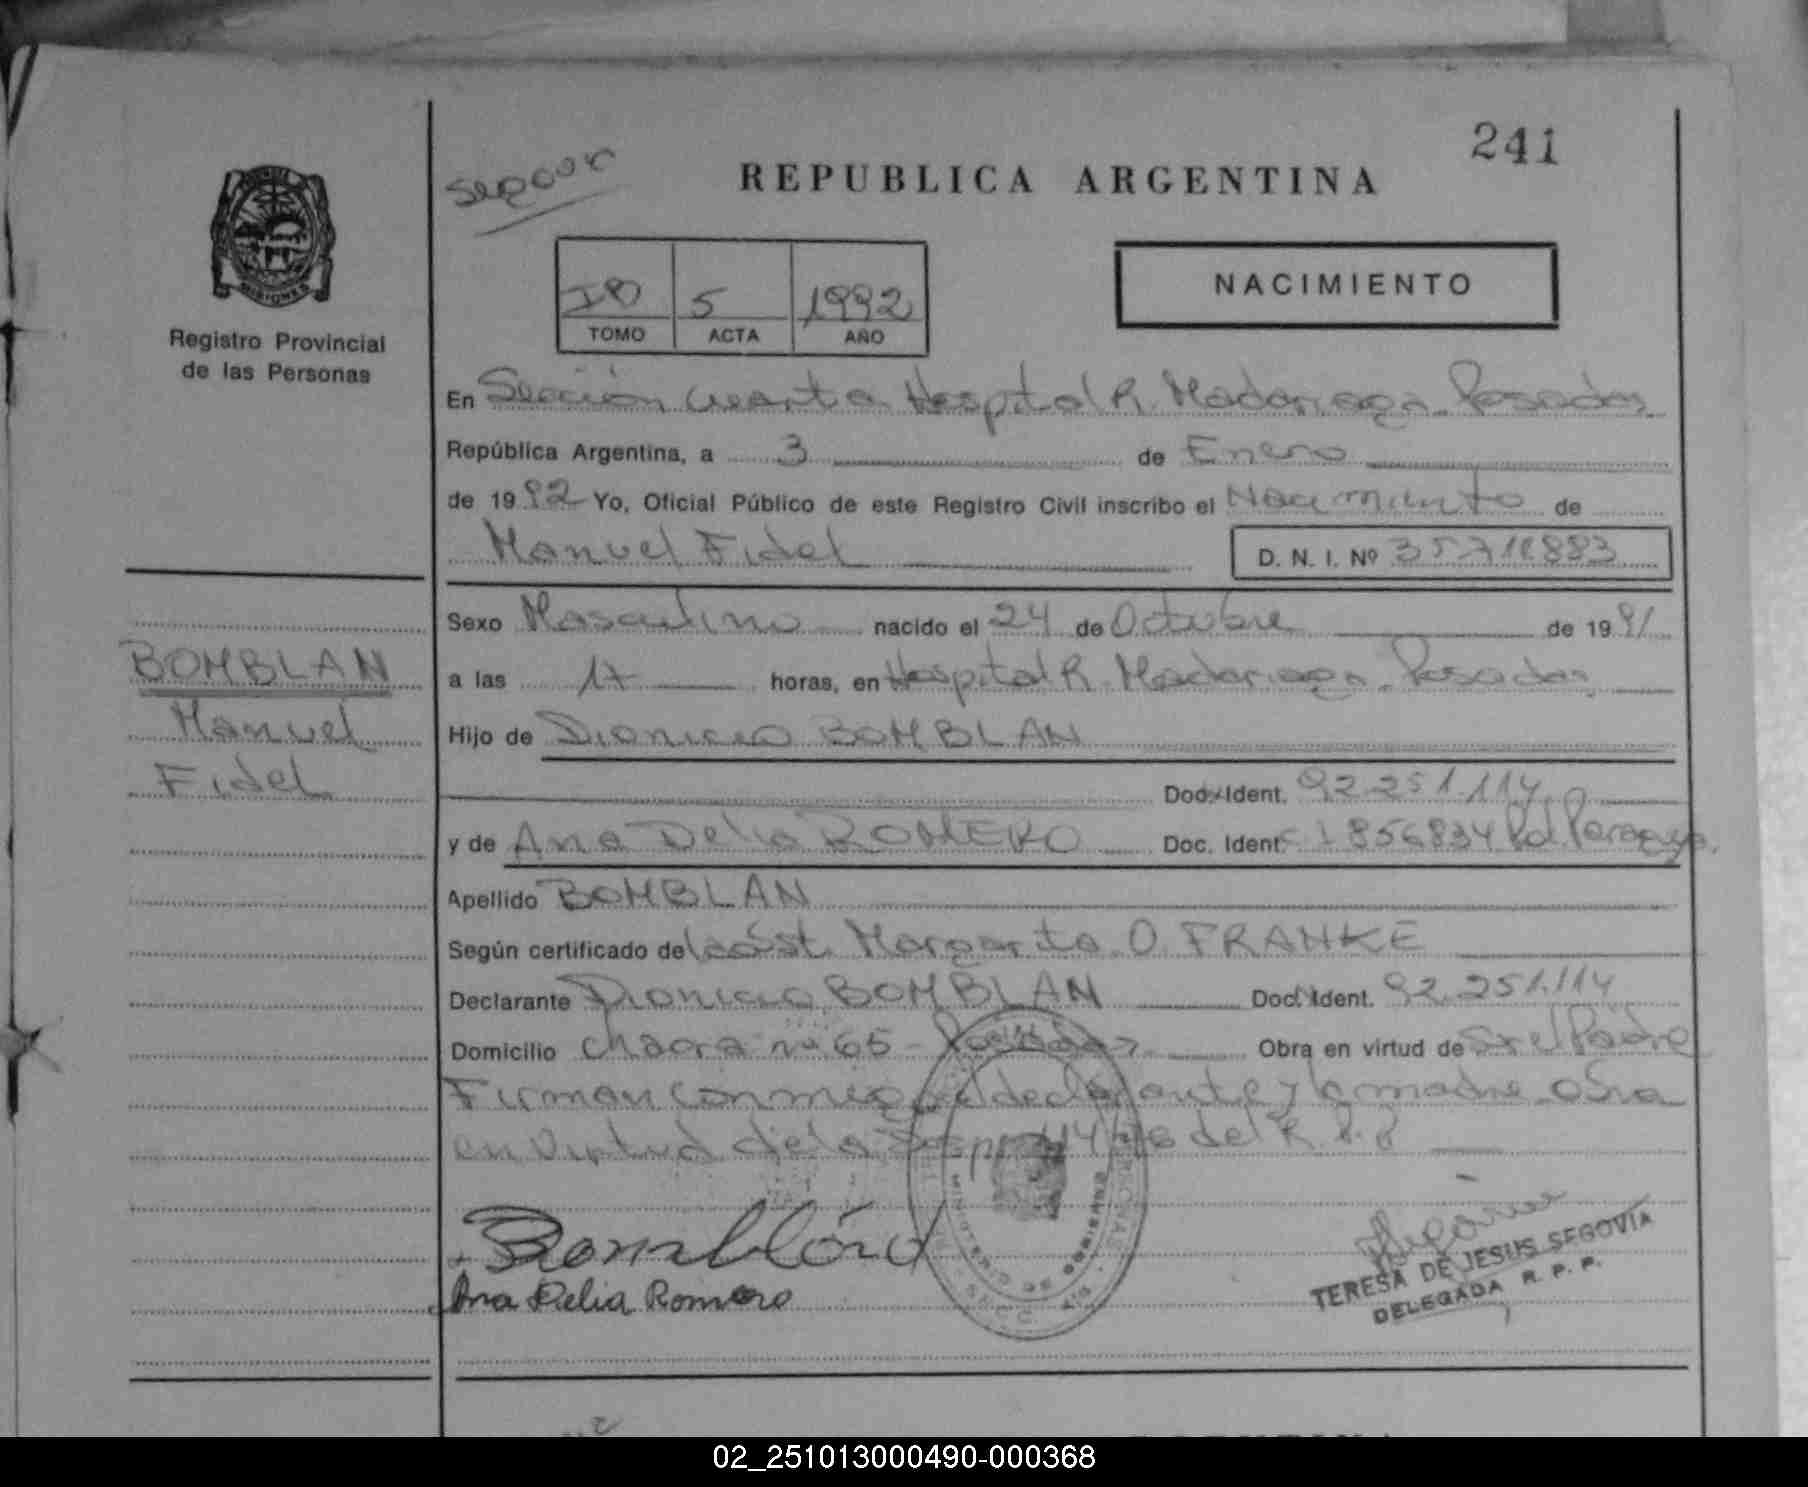 241
REPUBLICA ARGENTINA
NACIMIENTO
5 1992
TOMO ACTA AÑO
MISIONES
Registro Provincial
de las Personas
En Sección Cuarta Hospital R. Madariaga Posadas
República Argentina, a 3 de Enero
de 1992 Yo, Oficial Público de este Registro Civil inscribo el Nacimiento de
Manuel Fidel D. N. I. Nº
Sexo Masculino nacido el 24 de Octubre de 1991
a las 17 horas, en Hospital R. Madariaga. Posadas
Hijo de Dionicio BOMBLAN
Doc. Ident. 92.251.114
y de Ana Delia ROMERO Doc. Ident. 1856834 Pol. Paraguya.
Apellido BOMBLAN
Según certificado de la obst. Margarita O. FRANKE
Declarante Dionicio BOMBLAN Doc. Ident. 92.251.114
Domicilio chacra nº 65 - Posadas Obra en virtud de ser el Padre
Firman conmigo el declarante y la madre. Obra
en virtud de la Disp. 114/ del R. P. P
BOMBLAN
Manuel
Fidel
Bomblán
Ana Delia Romero
TERESA DE JESUS SEGOVIA
DELEGADA R. P. P.
02_251013000490-000368